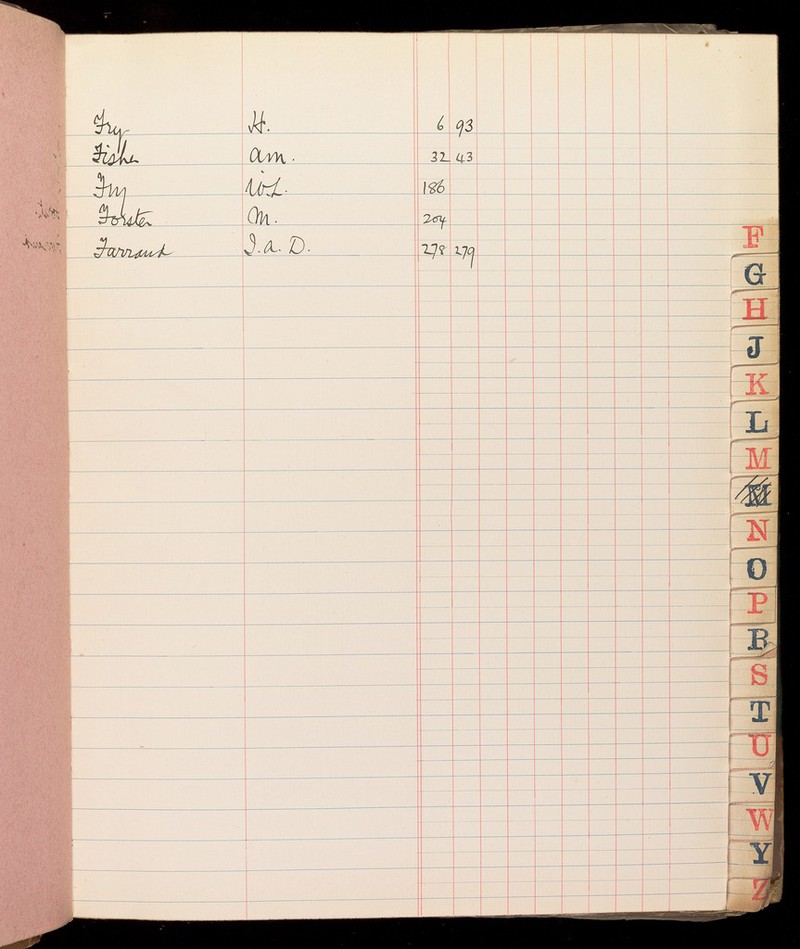 Fry H. 6 93
Fisher A.M. 32 43
Fry W.L. 186
Forster M. 204
Farrand I.A.D. 278 279
F
G
H
J
K
L
M
M
N
O
P
R
S
T
U
V
W
Y
Z